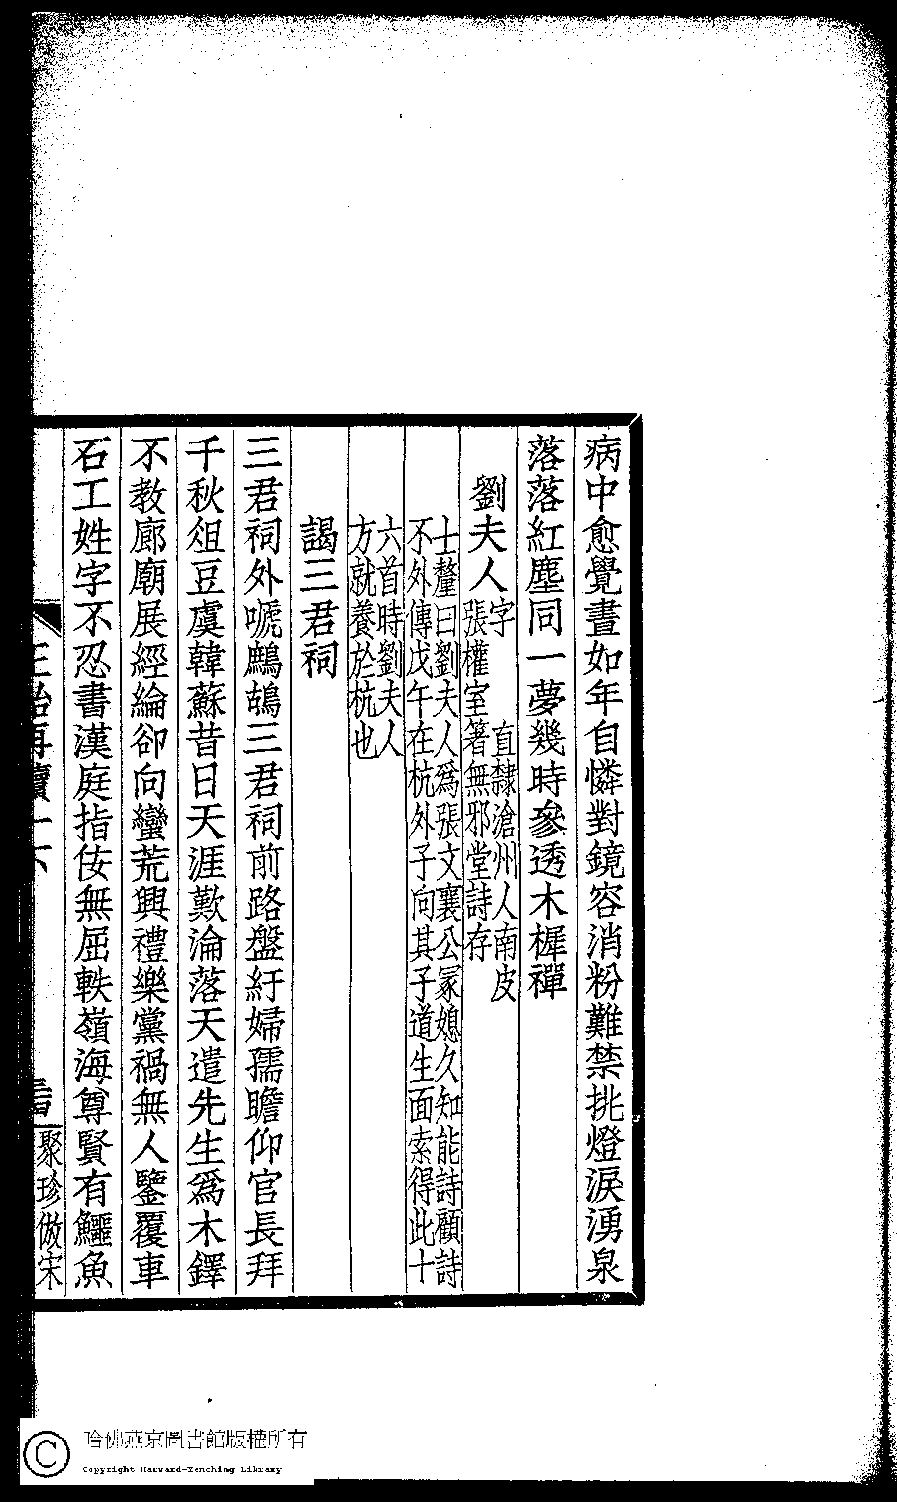 病中愈覺晝如年自憐對鏡容消粉難禁挑燈淚湧泉
落落紅塵同一夢幾時參透木樨禪
劉夫人字　　直隸滄州人南皮
張權室著無邪堂詩存
士釐曰劉夫人爲張文襄公冢媳久知能詩顧詩
不外傳戊午在杭外子向其子道生面索得此十
六首時劉夫人
方就養於杭也
謁三君祠
三君祠外嗁鷓鴣三君祠前路盤紆婦孺瞻仰官長拜
千秋俎豆虞韓蘇昔日天涯歎淪落天遣先生爲木鐸
不教廊廟展經綸卻向蠻荒興禮樂黨禍無人鑒覆車
石工姓字不忍書漢庭指佞無屈軼嶺海尊賢有鱷魚
再續一下
聚珍倣宋
哈佛燕京圖書館版權所有
Copyright Harvard-Yenching Library